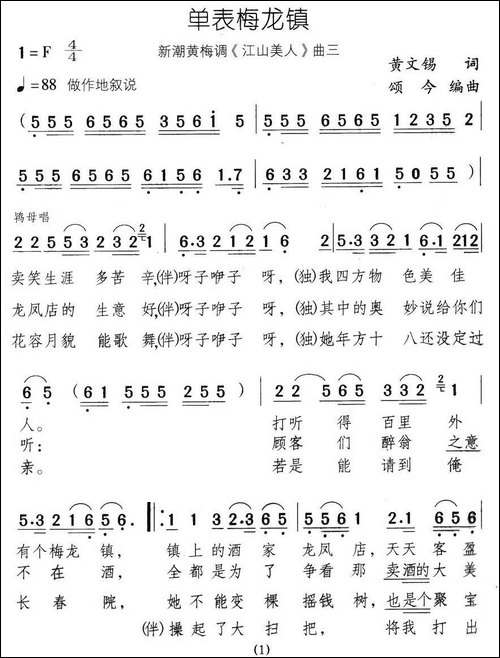 单表梅龙镇
1=F 4/4 新潮黄梅调《江山美人》曲三 黄文锡 词
♩=88 做作地叙说 颂今 编曲
( 5 5 5 6 5 6 5 3 5 6 i 5 | 5 5 5 6 5 6 5 1 2 3 5 2 |
5 5 5 6 5 6 5 6 1 5 6 1.7 | 6 3 3 2 2 1 6 1 5 0 5 5 )|
鸨母唱
2 2 5 5 3 2 3 2 2 1 | 6.3 2 1 2 1 6 | 2 5.3 2 3 2 1 6.1 2 1 2 |
卖笑生涯 多苦 辛,(伴)呀子咿子 呀, (独)我四方物 色美 佳
龙凤店的 生意 好,(伴)呀子咿子 呀, (独)其中的奥 妙说给你们
花容月貌 能歌 舞,(伴)呀子咿子 呀, (独)她年方十 八还没定过
6 5 ( 6 1 5 5 5 2 5 5 5 )| 2 2 5 6 5 3 3 2 2 1 |
人。 打听 得 百里 外
听: 顾客 们 醉翁 之意
亲。 若是 能 请到 俺
5.3 2 1 6 5 6. :| 1 1 3 2.3 6 5 | 5 5 2 2.1 6 5 6 |
有个梅龙 镇, 镇上的酒 家 龙凤店, 天天 客盈
不在 酒, 全都是为了 争看那 卖酒的大美
长春 院, 她不能变 棵 摇钱 树, 也是个聚宝
(伴)操起了大 扫 把, 将我打出
(1)